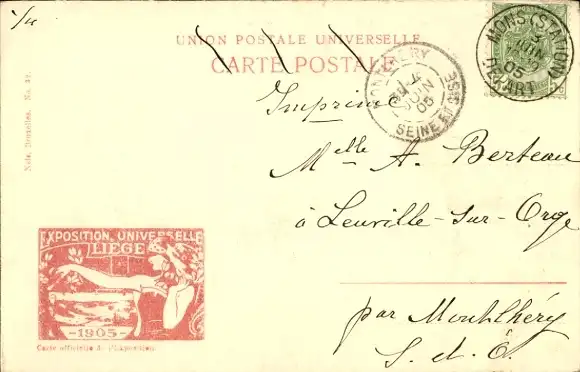 UNION POSTALE UNIVERSELLE
CARTE POSTALE
MONS (STATION)
3
JUIN
05
DEPART
MONTLHERY
4
JUIN
05
SEINE ET OISE
Imprimé
Melle A. Berteau
à Leuville-sur-Orge
par Montlhéry
S.-et-O.
Nels, Bruxelles.
EXPOSITION UNIVERSELLE
LIEGE
-1905-
Carte officielle de l'Exposition